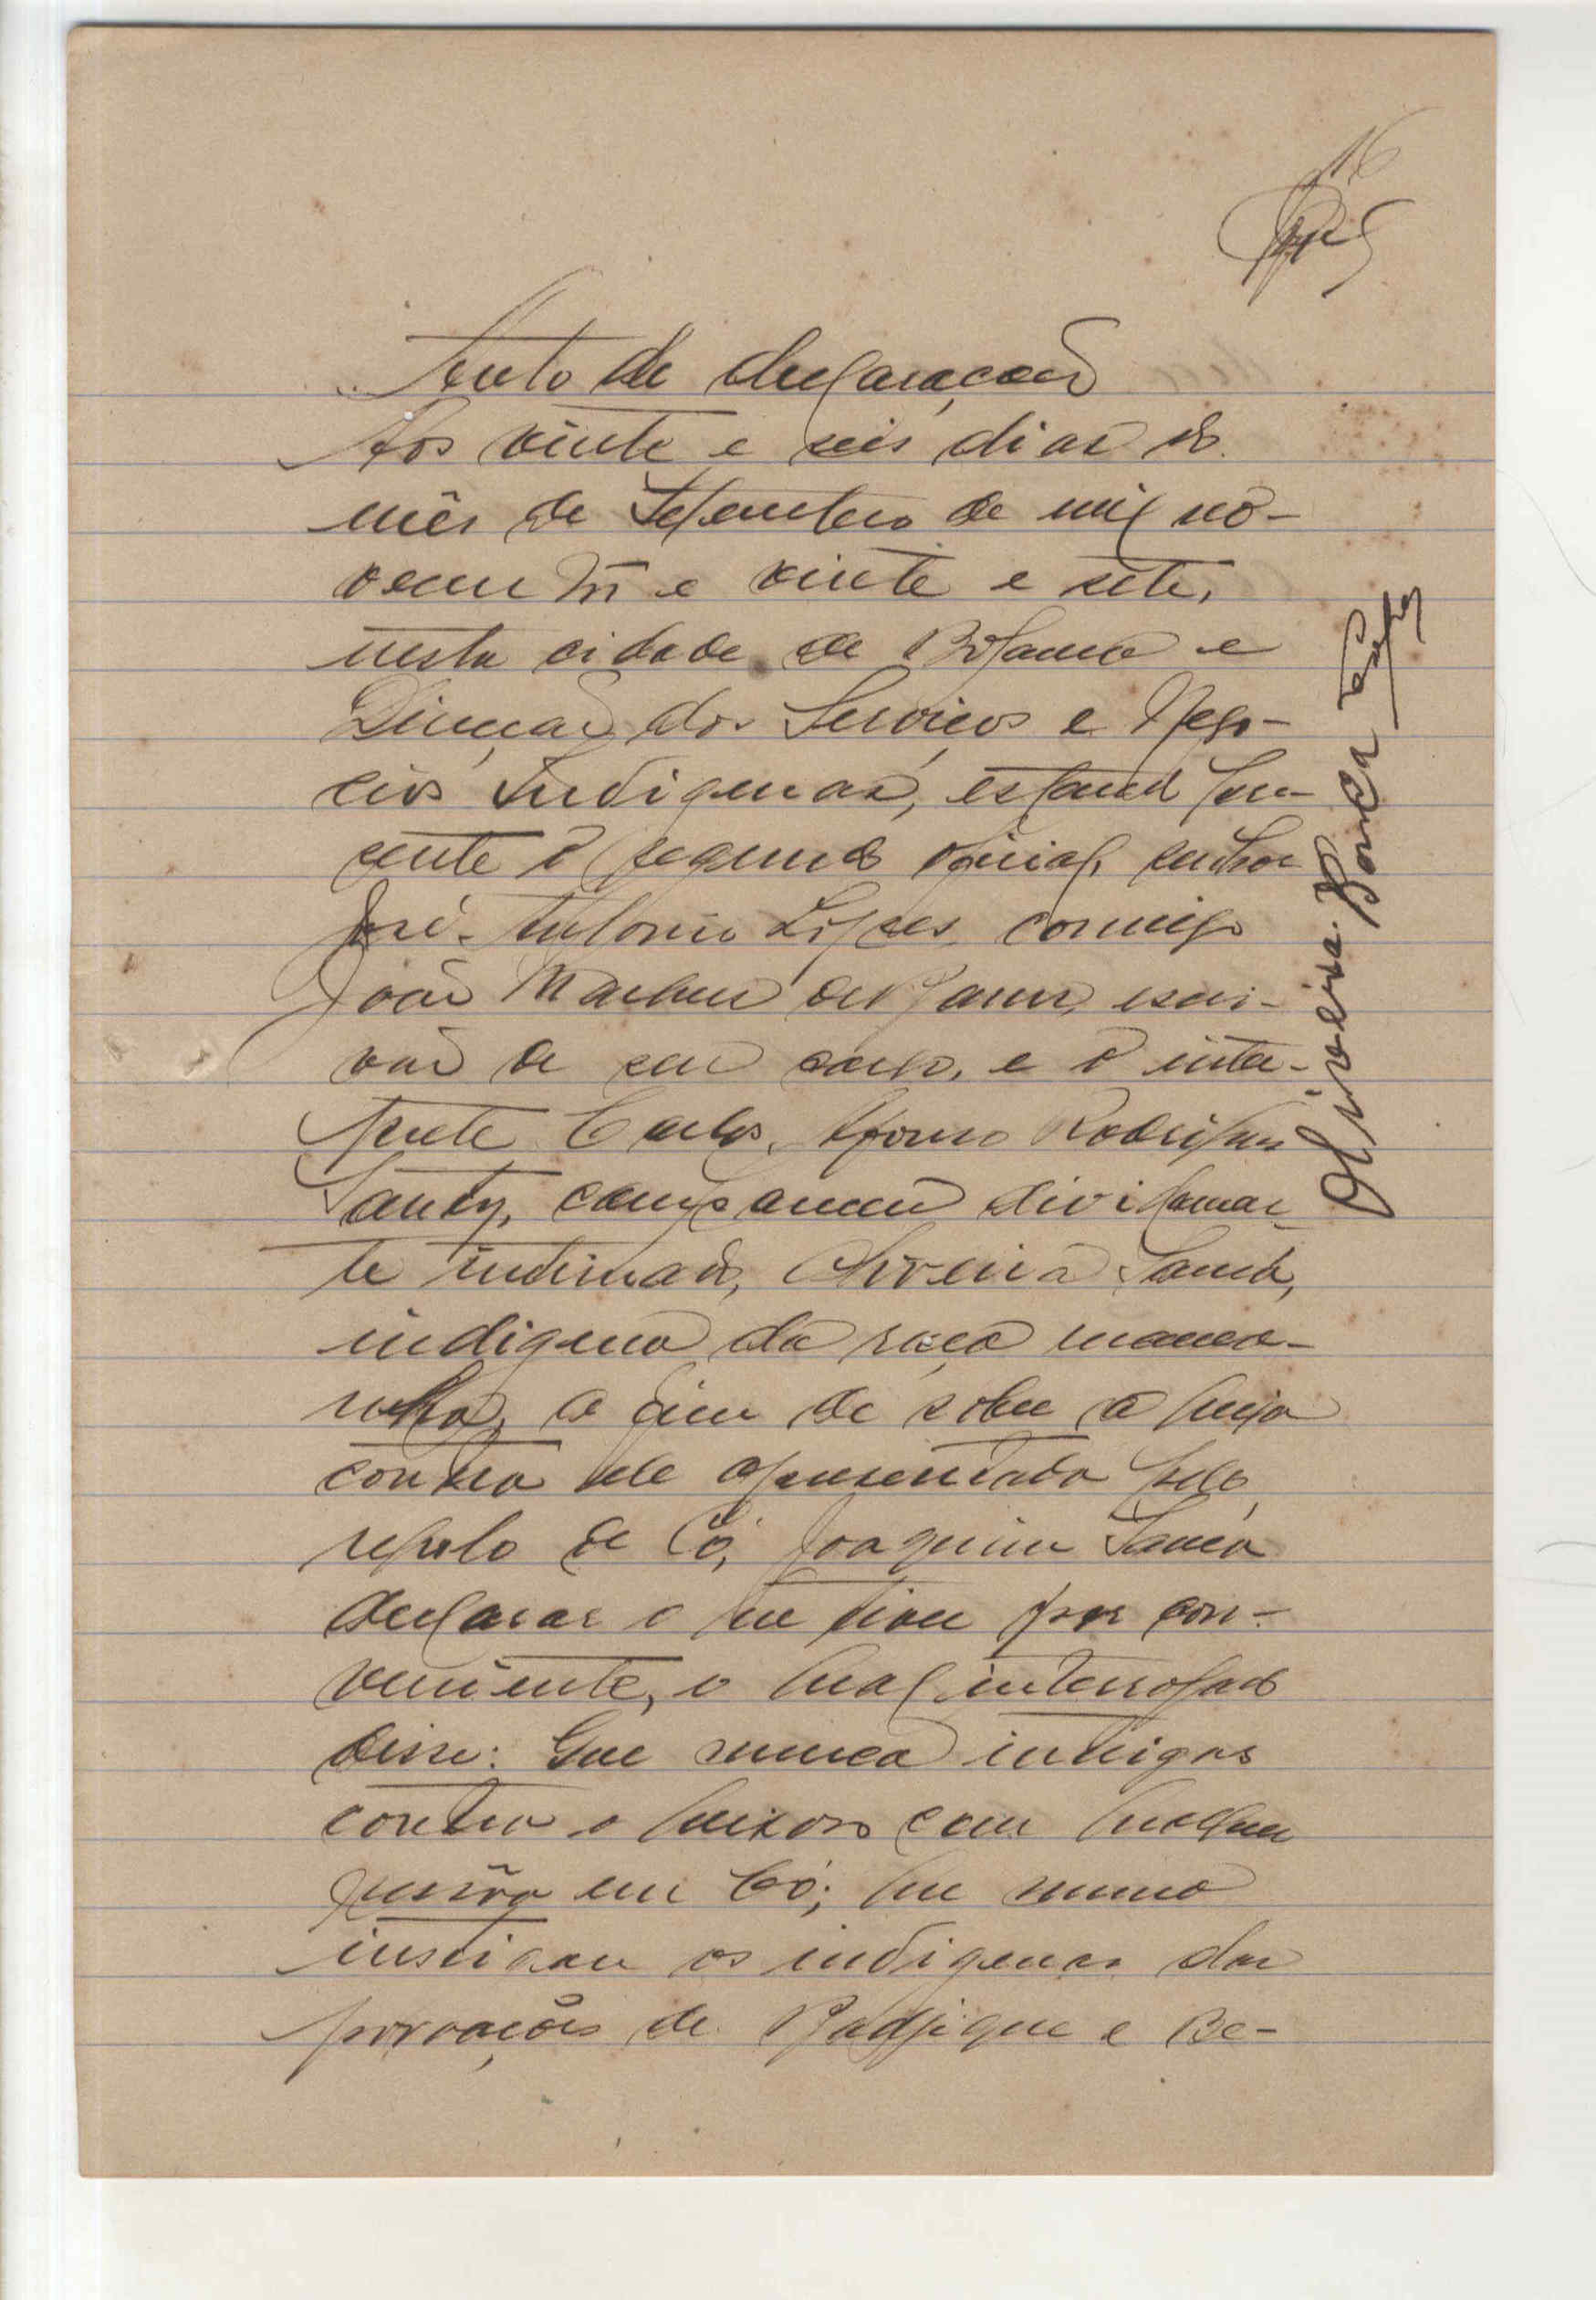 16
Auto de declaração
Aos vinte e seis dias do
mês de Setembro de mil no-
vecentos e vinte e sete,
nesta cidade de Bolama e
Direcção dos Serviços e Nego-
cios Indigenas, estando pre-
sente o segundo oficial, senhor
José Antonio Lopes, comigo
João escri-
vão de seu cargo, e o inter-
prete Carlos Afonso Rodrigues
compareceu dividamen-
te intimado, Oliveira Sanca,
indigena da raça manca-
nha, a fim de sobre a queixa
contra ele apresentada pelo
regulo de Có, Joaquim Sanca
declarar o que tiver por con-
veniente, o qual interrogado
disse: Que nunca intrigas
contra o queixoso com qualquer
pessôa em Có; que nunca
instigou os indigenas das
povoações de Badjique e Be-
Oliveira Sanca